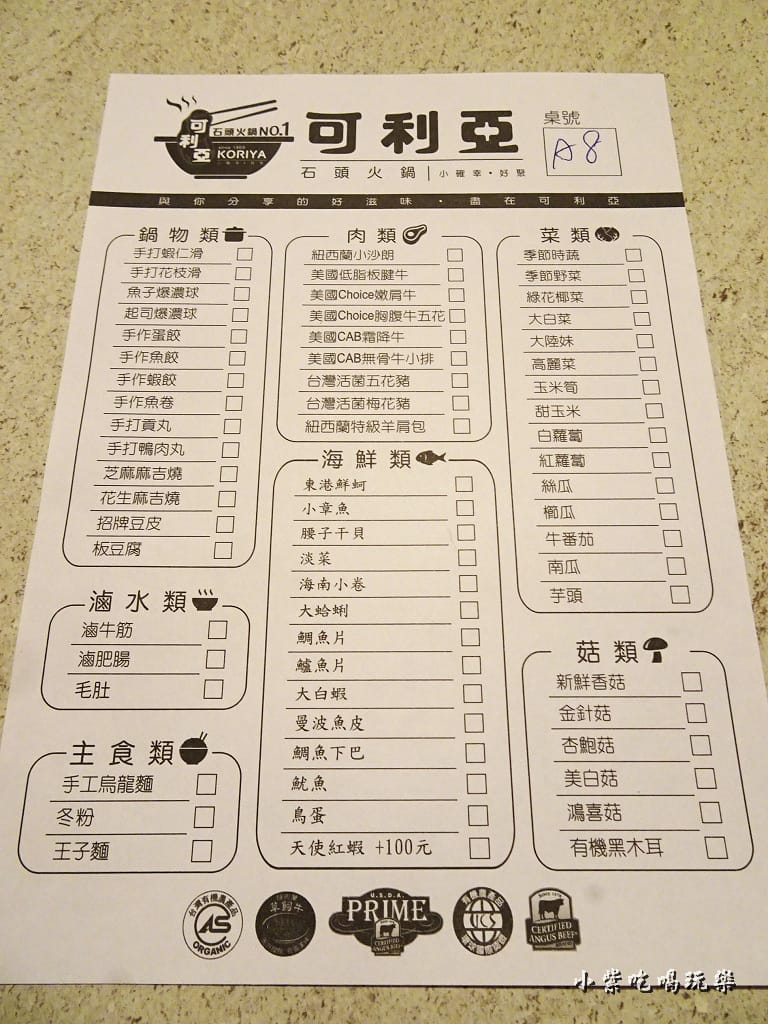 可利亞
石頭火鍋NO.1
since 1989
KORIYA
可利亞
桌號
A8
石頭火鍋
小確幸·好聚
與你分享的好滋味·盡在可利亞
鍋物類
手打蝦仁滑
手打花枝滑
魚子爆濃球
起司爆濃球
手作蛋餃
手作魚餃
手作蝦餃
手作魚卷
手打貢丸
手打鴨肉丸
芝麻麻吉燒
花生麻吉燒
招牌豆皮
板豆腐
滷水類
滷牛筋
滷肥腸
毛肚
主食類
手工烏龍麵
冬粉
王子麵
肉類
紐西蘭小沙朗
美國低脂板腱牛
美國Choice嫩肩牛
美國Choice胸腹牛五花
美國CAB霜降牛
美國CAB無骨牛小排
台灣活菌五花豬
台灣活菌梅花豬
紐西蘭特級羊肩包
海鮮類
東港鮮蚵
小章魚
腰子干貝
淡菜
海南小卷
大蛤蜊
鯛魚片
鱸魚片
大白蝦
曼波魚皮
鯛魚下巴
魷魚
鳥蛋
天使紅蝦 +100元
菜類
季節時蔬
季節野菜
綠花椰菜
大白菜
大陸妹
高麗菜
玉米筍
甜玉米
白蘿蔔
紅蘿蔔
絲瓜
櫛瓜
牛番茄
南瓜
芋頭
菇類
新鮮香菇
金針菇
杏鮑菇
美白菇
鴻喜菇
有機黑木耳
台灣有機農產品
AS
ORGANIC
草飼牛
U.S.D.A.
PRIME
CERTIFIED
ANGUS BEEF
有機農產品
UCS
SINCE 1978
CERTIFIED
ANGUS BEEF
小紫吃喝玩樂